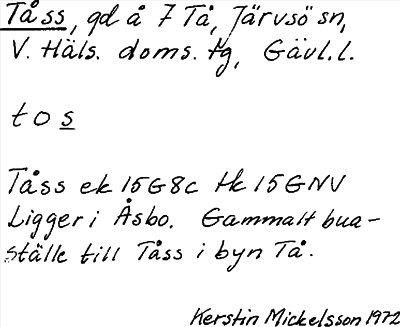 Tåss, gd å 7 Tå, Järvsö sn,
V. Häls. doms. tg, Gävl.l.
tos
Tåss ek 15G8c tk 15GNV
Ligger i Åsbo. Gammalt bua-
ställe till Tåss i byn Tå.
Kerstin Mickelsson 1972